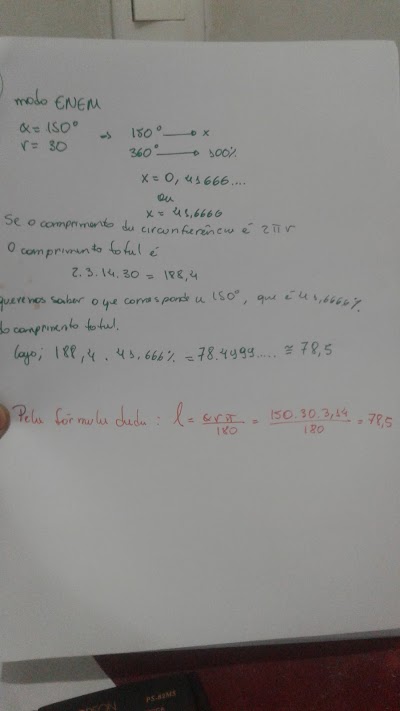 modo ENEM
α = 150° → 150° → x
r = 30
360° → 100%
x = 0,41666....
ou
x = 41,6666
Se o comprimento da circunferência é 2πr
O comprimento total é
2.3.14.30 = 188,4
queremos saber o que corresponde a 150°, que é 41,6666%
do comprimento total.
Logo; 188,4 . 41.666% = 78.4999..... ≅ 78,5
Pela fórmula dada: l = αrπ/180 = 150.30.3,14/180 = 78,5